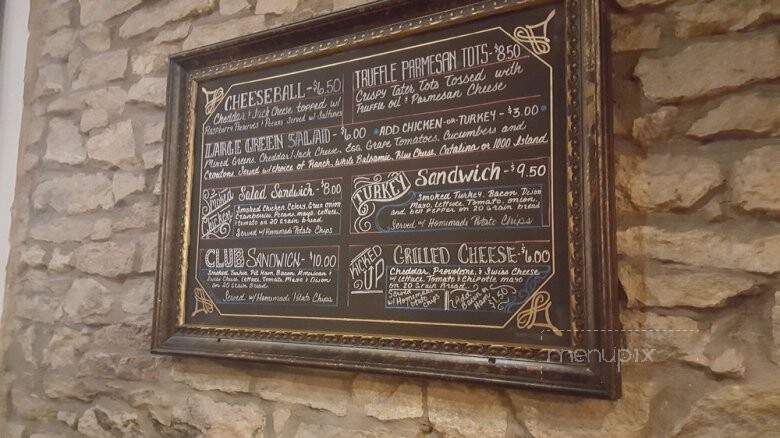 CHEESEBALL - $6.50
Cheddar & Jack Cheese topped w/
Raspberry Preserves & Pecans Served w/ Saltines
TRUFFLE PARMESAN TOTS - 8.50
Crispy Tater Tots Tossed with
Truffle oil & Parmesan Cheese
LARGE GREEN SALAD - $6.00 * ADD CHICKEN -OR- TURKEY - $3.00 *
Mixed Greens, Cheddar/Jack Cheese, Egg, Grape Tomatoes, Cucumbers and
Croutons. Served w/choice of Ranch, White Balsamic, Blue Cheese, Catalina or 1000 Island
Smoked Chicken
Salad Sandwich - $8.00
Smoked Chicken, Celery, Green onion
Cranberries, Pecans, mayo, lettuce,
Tomato on 20 Grain bread
Served w/ Homemade Potato Chips
TURKEY Sandwich - $9.50
Smoked Turkey, Bacon, Dijon
Mayo, Lettuce, Tomato, onion,
and bell pepper on 20 Grain bread
Served w/ Homemade Potato Chips
CLUB SANDWICH - $10.00
Smoked Turkey, Pit Ham, Bacon, American &
Swiss Cheese, Lettuce, Tomato, Mayo & Dijon
on 20 Grain Bread
Served w/ Homemade Potato Chips
KICKED UP
GRILLED CHEESE - $6.00
Cheddar, Provolone, & Swiss Cheese
w/ Lettuce, Tomato & Chipotle mayo
on 20 Grain Bread
Served
w/ Homemade
Potato
Chips
Add
Bacon or
Ham
$1.50
menupix